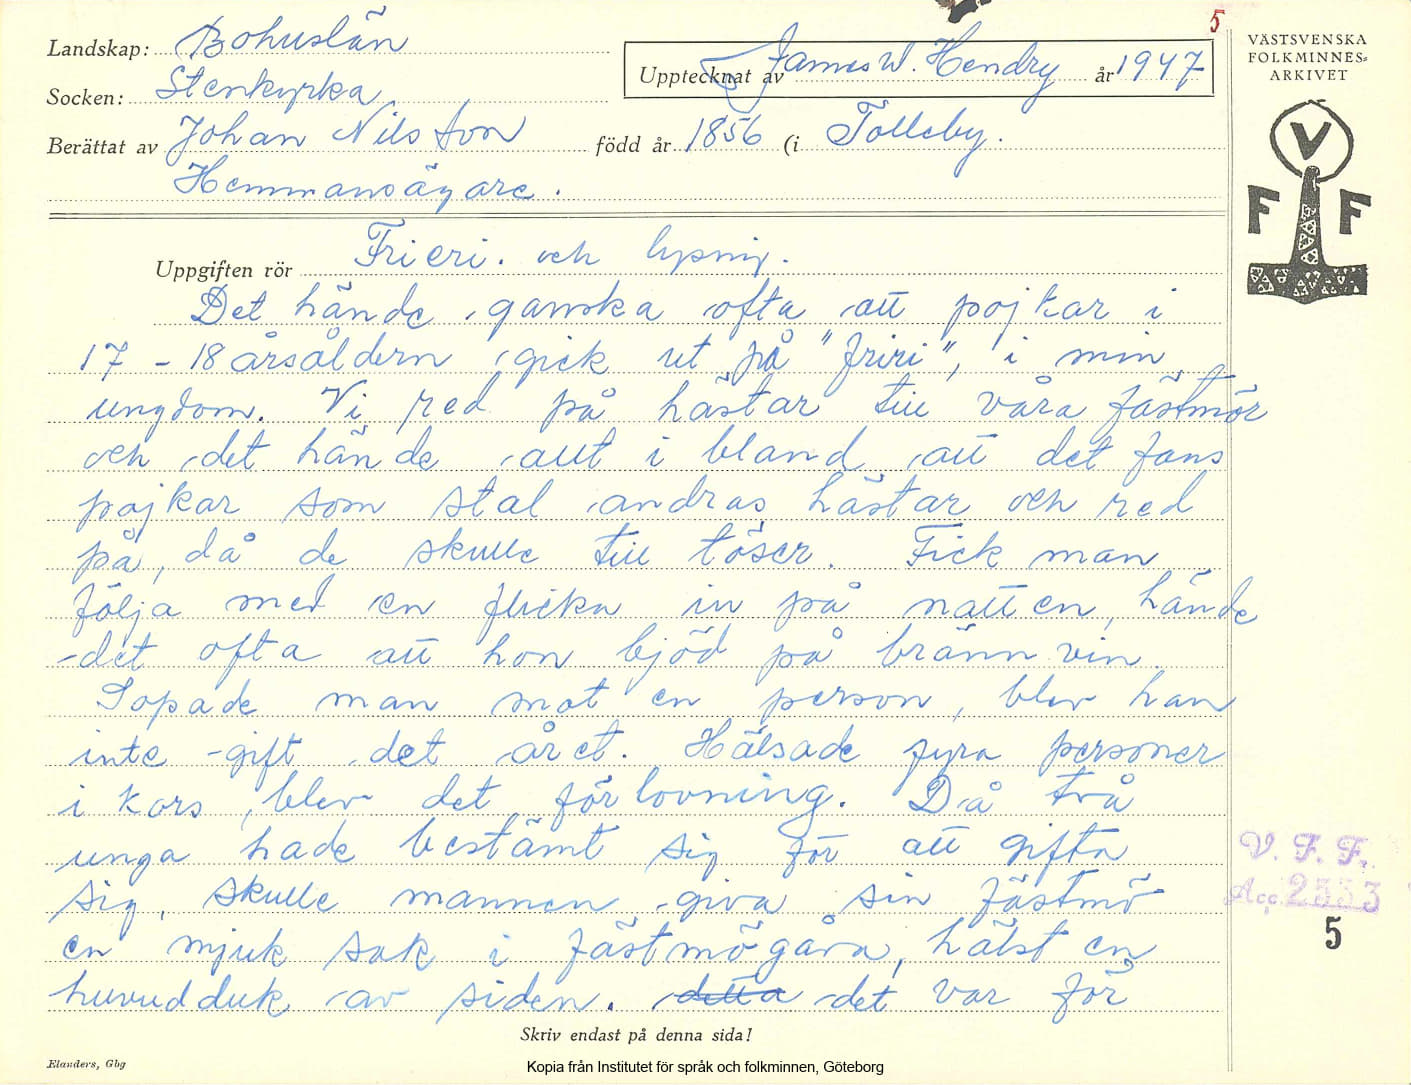 5
Landskap: Bohuslän
Upptecknat av James W. Hendry år 1947
VÄSTSVENSKA
FOLKMINNES=
ARKIVET
Socken: Stenkyrka
Berättat av Johan Nilsson född år 1856 (i Tolleby.
Hemmansägare.
V
F F
Uppgiften rör Frieri. och lysnig.
Det hände ganska ofta att pojkar i
17 - 18 årsåldern gick ut på "friri", i min
ungdom. Vi red på hästar till våra fästmör
och det hände allt i bland att det fans
pojkar som stal andras hästar och red
på, då de skulle till töser. Fick man
följa med en flicka in på natten, hände
det ofta att hon bjöd på bränn vin.
Sopade man mot en person, blev han
inte gift det året. Hälsade fyra personer
i kors, blev det förlovning. Då två
unga hade bestämt sig för att gifta
sig, skulle mannen giva sin fästmö
en mjuk sak i fästmögåva, hälst en
huvudduk av siden. detta det var för
V. F. F.
Acc. 2553
5
Skriv endast på denna sida!
Elanders, Gbg
Kopia från Institutet för språk och folkminnen, Göteborg